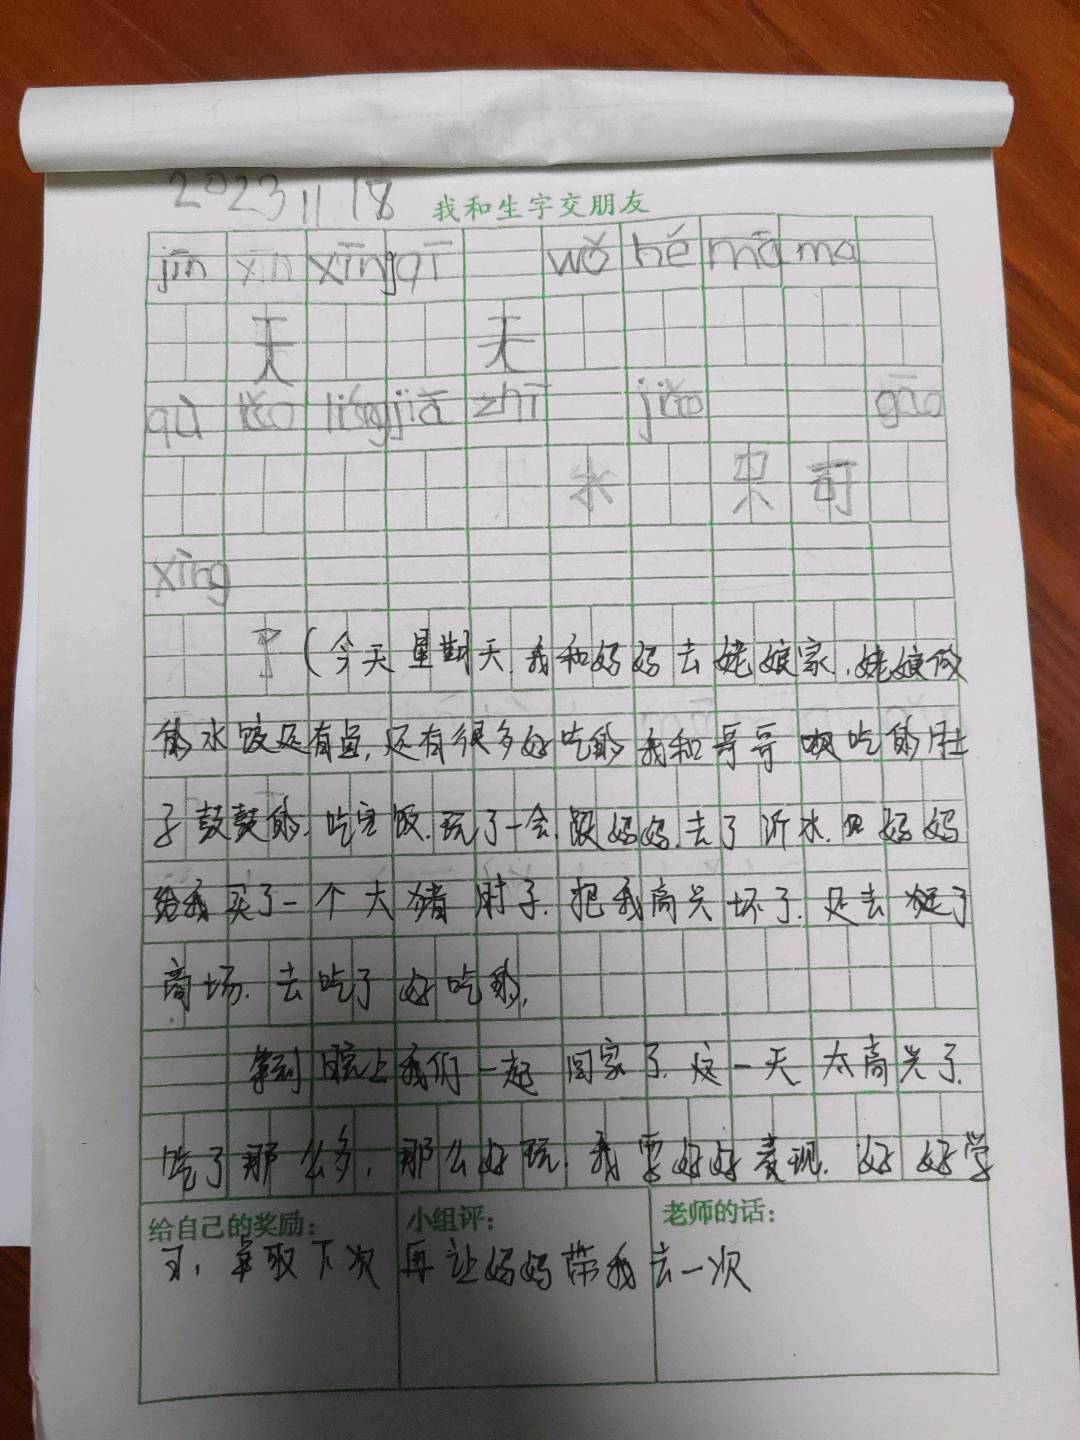 2023 11 18
我和生字交朋友
jīn xīn xīngqī wǒ hé mā ma
天 天
qù lǎo jiā zhī jiǎo gāo
水 果 可
xìng
了(今天星期天,我和妈妈去姥娘家,姥娘做
的水饭还有鱼,还有很多好吃的 我和哥哥 吃的肚
子鼓鼓的,吃完饭,玩了一会,跟妈妈去了沂水,妈妈
给我买了一个大猪肘子,把我高兴坏了,还去逛了
商场,去吃了好吃的,
等到晚上我们一起回家了,这一天太高兴了,
吃了那么多,那么好玩,我要好好表现,好好学
给自己的奖励: 小组评: 老师的话:
习,争取下次再让妈妈带我去一次